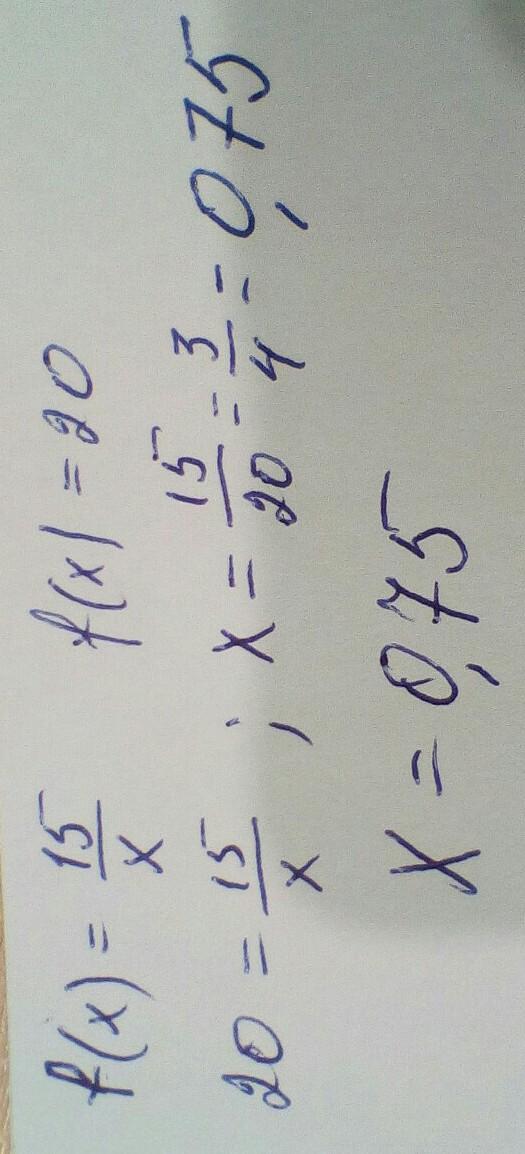 f(x) = 15/x f(x) = 20
20 = 15/x ; x = 15/20 = 3/4 = 0,75
x = 0,75